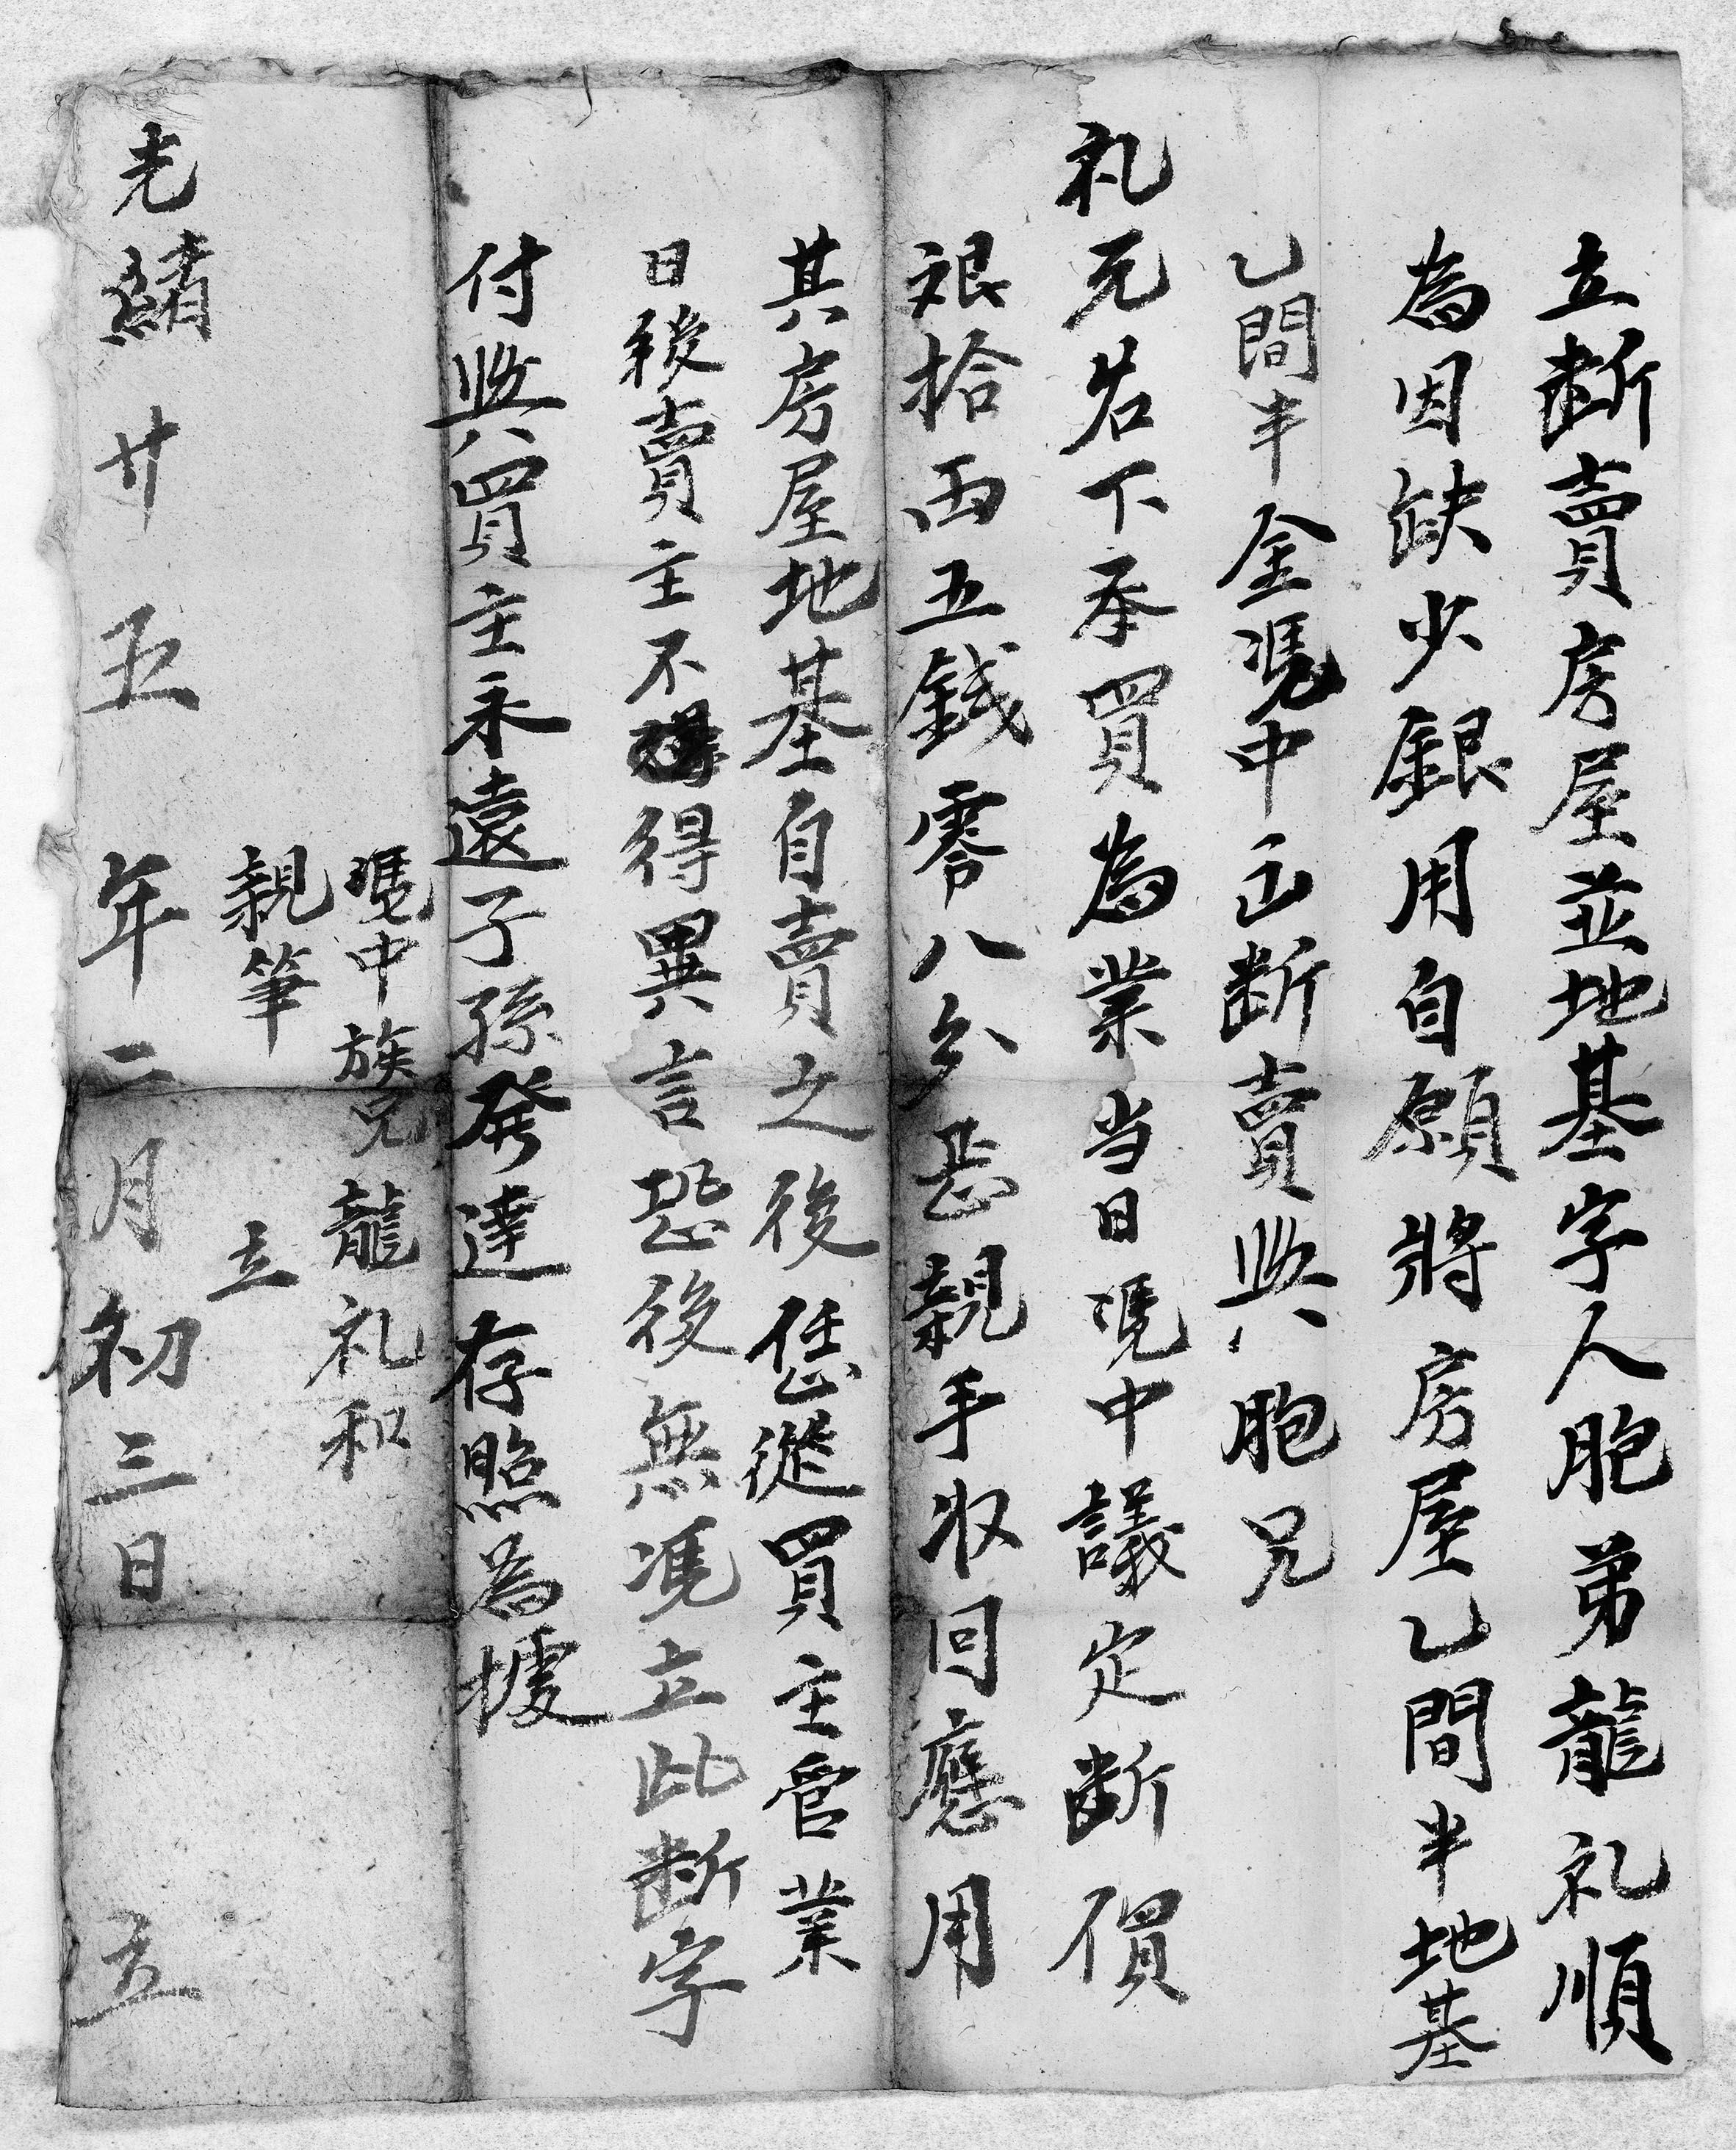 立断賣房屋並地基字人胞弟龍礼順
為因缺少銀用自願將房屋乙間半地基
乙間半全凴中正断賣與胞兄
礼元名下承買為業当日凴中議定断價
艮拾両五銭零八分悉親手収回應用
其房屋地基自賣之後恁從買主管業
日後賣主不得異言恐後無凴立此断字
付與買主永遠子孫発達存照為據
凴中族兄龍礼和
親筆立
光緒廿五年二月初三日立